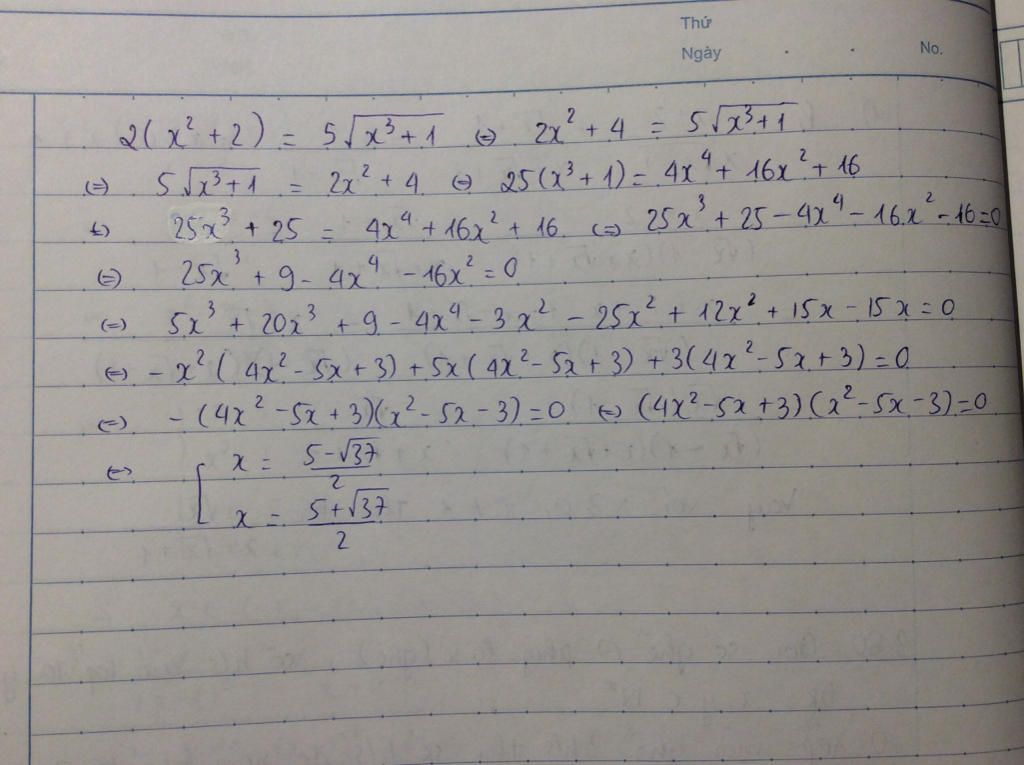 Thứ
Ngày . . No.
2(x² + 2) = 5√(x³+1) (=) 2x² + 4 = 5√(x³+1)
(=) 5√(x³+1) = 2x² + 4 (=) 25(x³+1) = 4x⁴ + 16x² + 16
(=) 25x³ + 25 = 4x⁴ + 16x² + 16 (=) 25x³ + 25 - 4x⁴ - 16x² - 16 = 0
(=) 25x³ + 9 - 4x⁴ - 16x² = 0
(=) 5x³ + 20x³ + 9 - 4x⁴ - 3x² - 25x² + 12x² + 15x - 15x = 0
(=) - x²(4x² - 5x + 3) + 5x(4x² - 5x + 3) + 3(4x² - 5x + 3) = 0
(=) - (4x² - 5x + 3)(x² - 5x - 3) = 0 (=) (4x² - 5x + 3)(x² - 5x - 3) = 0
(=) [ x = (5-√37)/2
x = (5+√37)/2